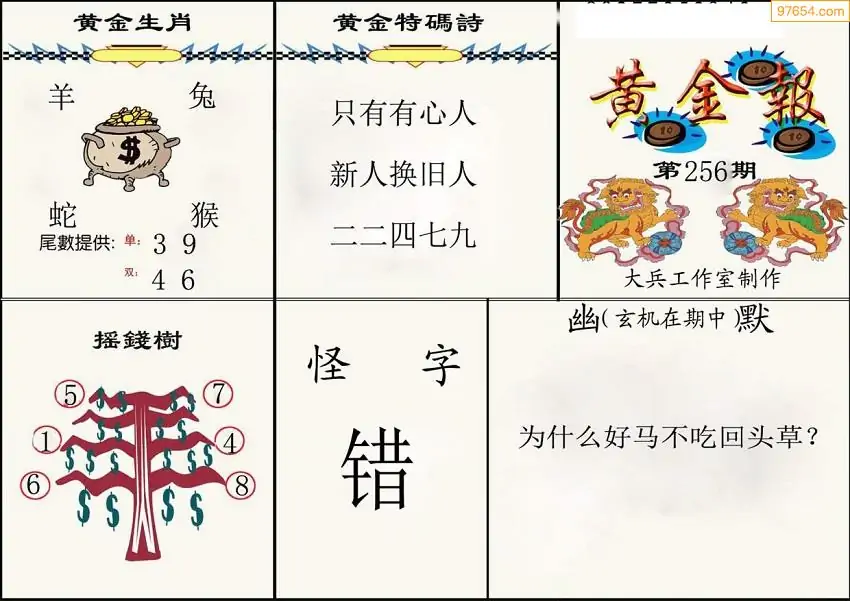 97654.com
黄金生肖
羊 兔
$
蛇 猴
尾數提供: 单: 3 9
双: 4 6
黄金特碼詩
只有有心人
新人换旧人
二二四七九
黄金報
10
10
10
第256期
大兵工作室制作
摇錢樹
5 7
1 4
6 8
怪 字
错
幽(玄机在期中)默
为什么好马不吃回头草?